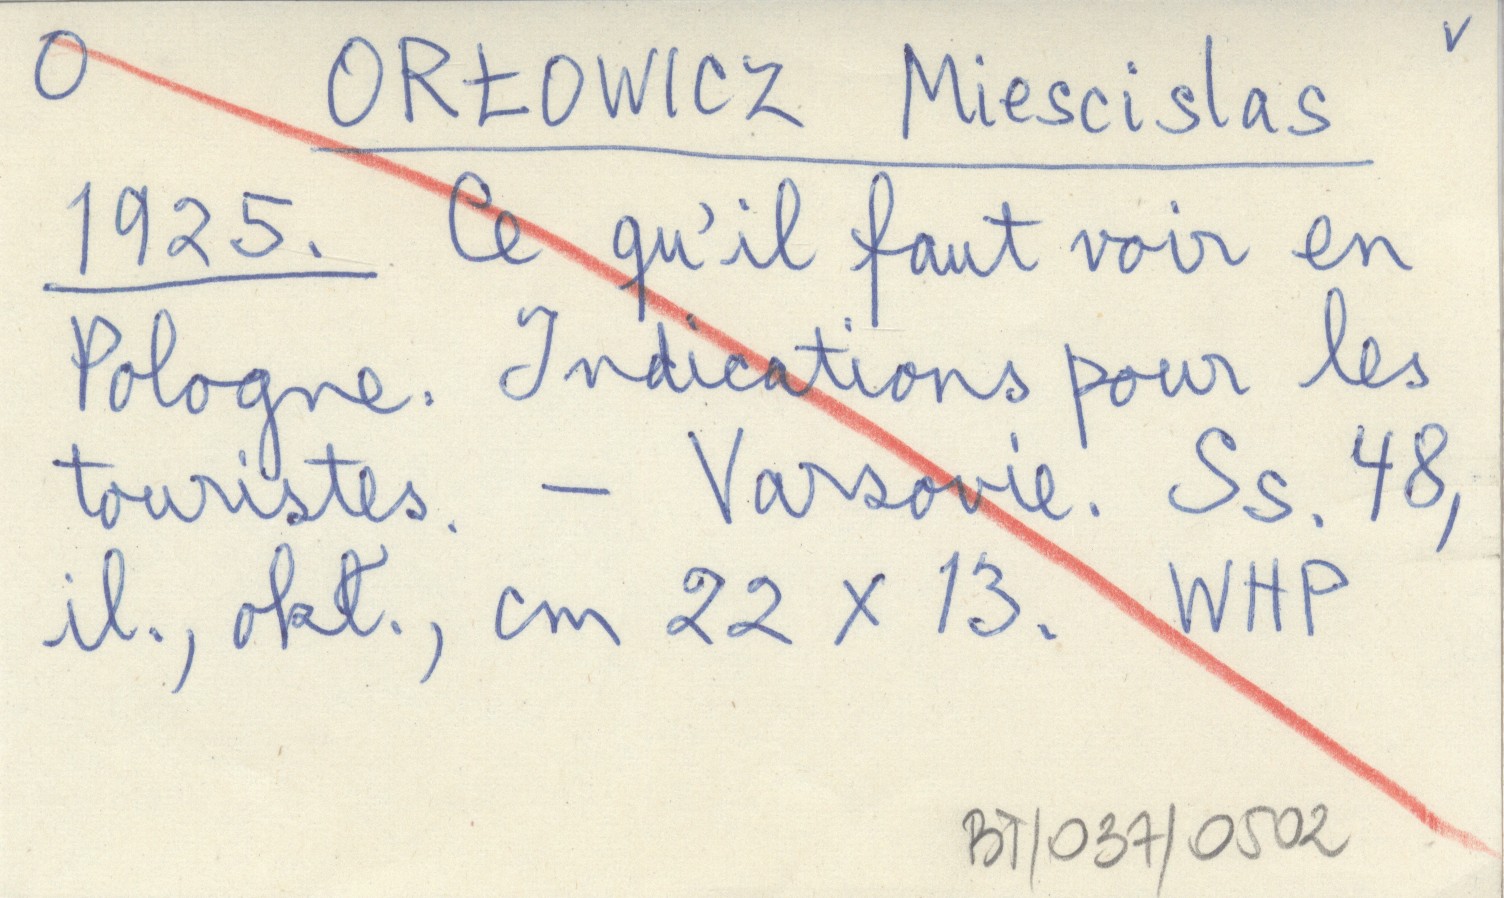 O ORŁOWICZ Miescislas v
1925. Ce qu'il faut voir en
Pologne. Indications pour les
touristes. – Varsovie. Ss. 48,
il., okł., cm 22 x 13. WHP
BT/037/0502